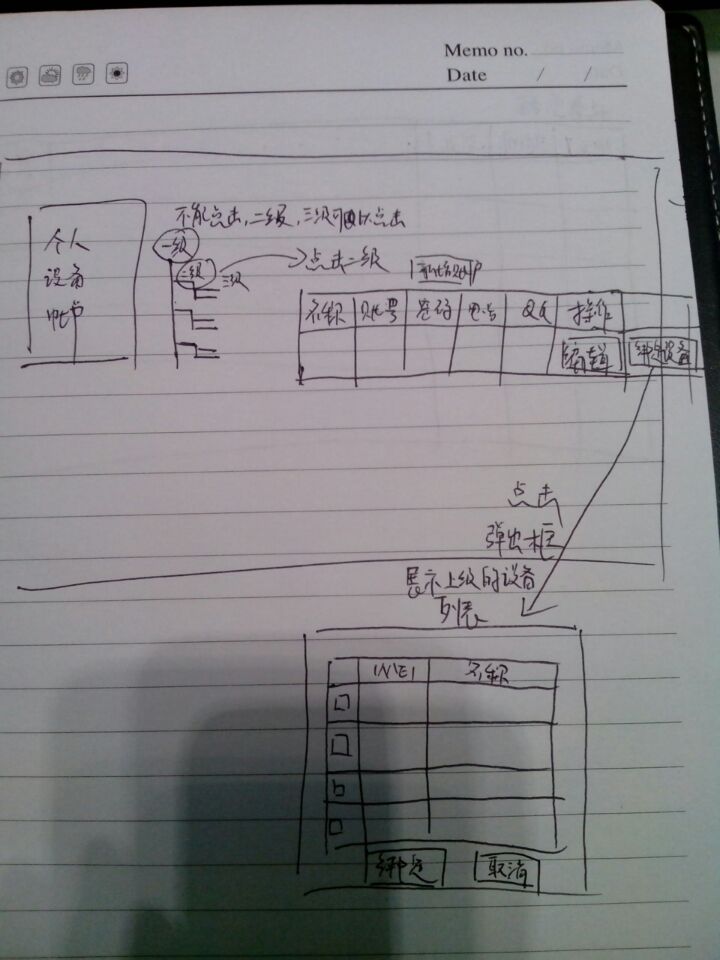 Memo no.
Date / /
不能点击,二级,三级可以点击
个人
设备
帐户
一级
二级
三级
点击二级
新增账户
名称 账号 密码 电话 QQ 操作
编辑 绑定设备
点击
弹出框
展示上级的设备
列表
IMEI 名称
绑定 取消